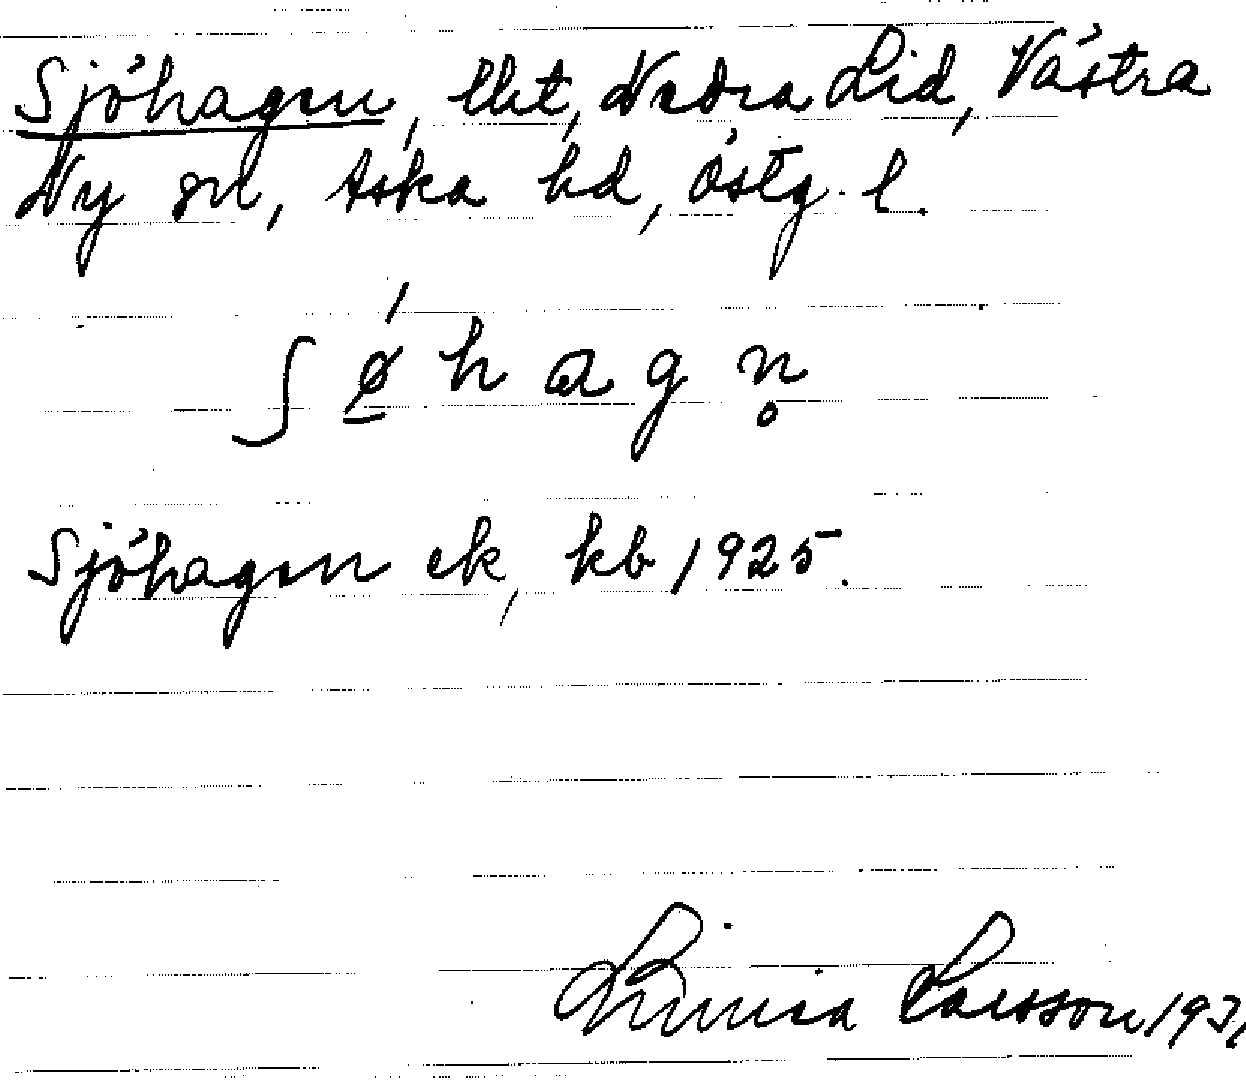 Sjöhagen, lht, Nedra Lid, Västra
Ny sn, Aska hd, Östg. l.
ʃ ǿ h a g n̥
Sjöhagen ek, kb 1925.
Larsson 193